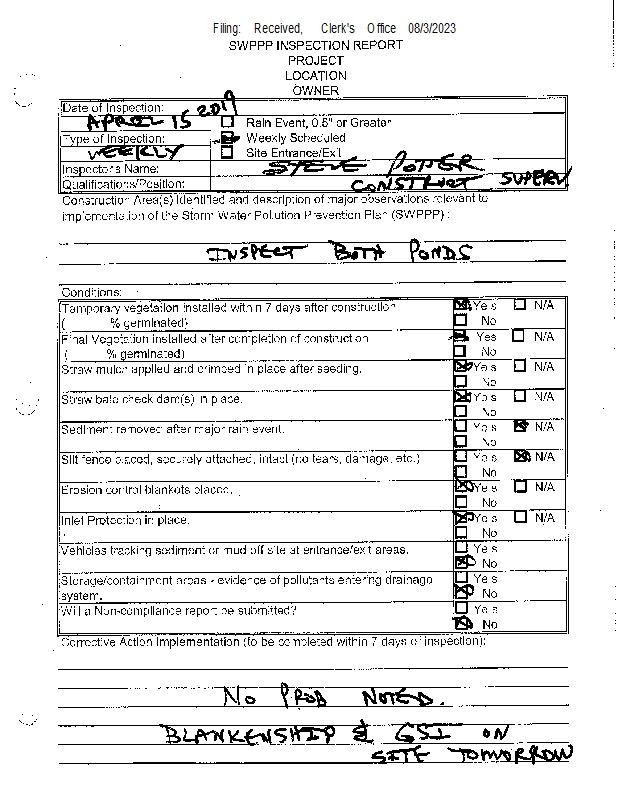 Filing: Received, Clerk's Office 08/3/2023
SWPPP INSPECTION REPORT
PROJECT
LOCATION
OWNER
Date of Inspection:
APRIL 15 2019
Rain Event, 0.5" or Greater
Type of Inspection:
WEEKLY
Weekly Scheduled
Site Entrance/Exit
Inspector's Name: STEVE POTTER
Qualifications/Position: CONSTRUCT SUPERV
Construction Area(s) identified and description of major observations relevant to
implementation of the Storm Water Pollution Prevention Plan (SWPPP) :
INSPECT BOTH PONDS
Conditions:
Temporary vegetation installed within 7 days after construction Yes N/A
( % germinated) No
Final Vegetation installed after completion of construction Yes N/A
( % germinated) No
Straw mulch applied and crimped in place after seeding. Yes N/A
No
Straw bale check dam(s) in place. Yes N/A
No
Sediment removed after major rain event. Yes N/A
No
Silt fence placed, securely attached, intact (no tears, damage, etc.) Yes N/A
No
Erosion control blankets placed. Yes N/A
No
Inlet Protection in place. Yes N/A
No
Vehicles tracking sediment or mud off site at entrance/exit areas. Yes
No
Storage/containment areas - evidence of pollutants entering drainage Yes
system. No
Will a Non-compliance report be submitted? Yes
No
Corrective Action Implementation (to be completed within 7 days of inspection):
NO PROB NOTED.
BLANKENSHIP & GSI ON
SITE TOMORROW